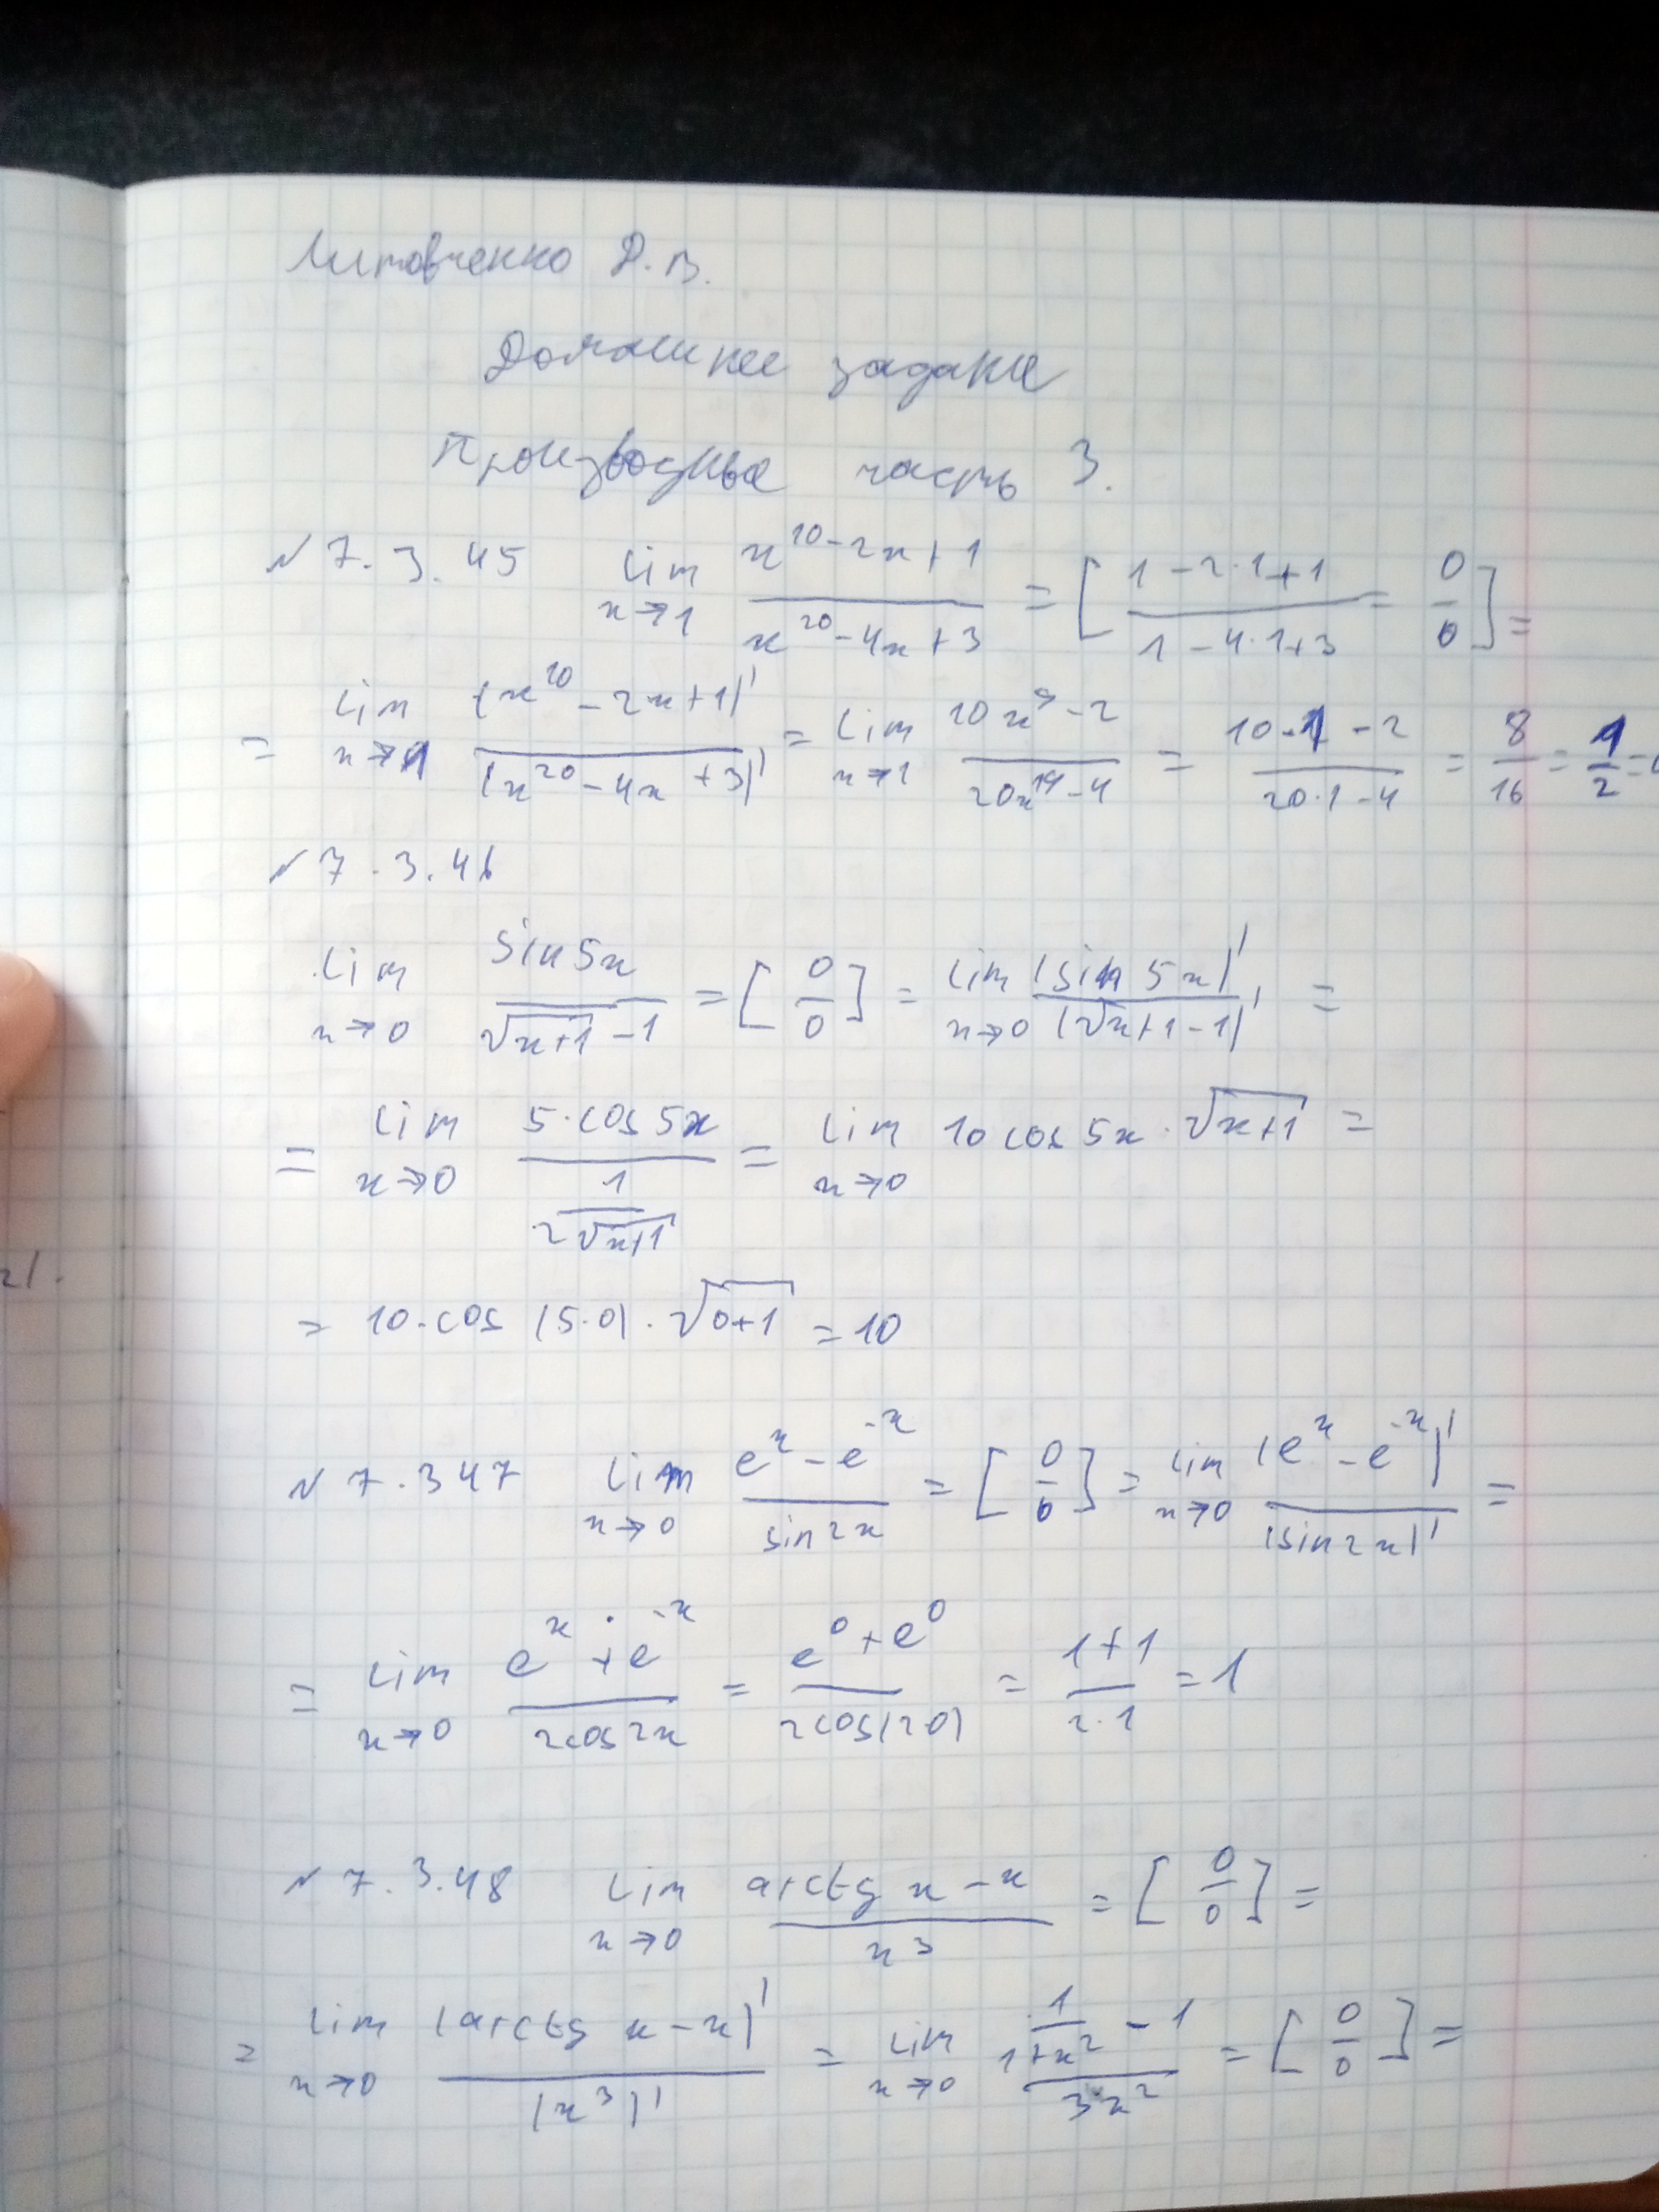 Литовченко Д. В.
Домашнее задание
Производные часть 3.
№ 7.3.45 lim x→1 (x^10 - 2x + 1)/(x^20 - 4x + 3) = [(1 - 2·1 + 1)/(1 - 4·1 + 3) = 0/0] =
= lim x→1 (x^10 - 2x + 1)'/(x^20 - 4x + 3)' = lim x→1 (10x^9 - 2)/(20x^19 - 4) = (10·1 - 2)/(20·1 - 4) = 8/16 = 1/2 =
№ 7.3.46
lim x→0 sin 5x/(√(x+1) - 1) = [0/0] = lim x→0 (sin 5x)'/(√x+1 - 1)' =
= lim x→0 (5·cos 5x)/(1/(2√(x+1))) = lim x→0 10 cos 5x · √(x+1) =
= 10·cos (5·0) · √(0+1) = 10
№ 7.347 lim x→0 (e^x - e^-x)/(sin 2x) = [0/0] = lim x→0 (e^x - e^-x)'/(sin 2x)' =
= lim x→0 (e^x + e^-x)/(2cos 2x) = (e^0 + e^0)/(2cos(2·0)) = (1+1)/(2·1) = 1
№ 7.3.48 lim x→0 (arctg x - x)/x^3 = [0/0] =
= lim x→0 (arctg x - x)'/(x^3)' = lim x→0 (1/(1+x^2) - 1)/(3x^2) = [0/0] =